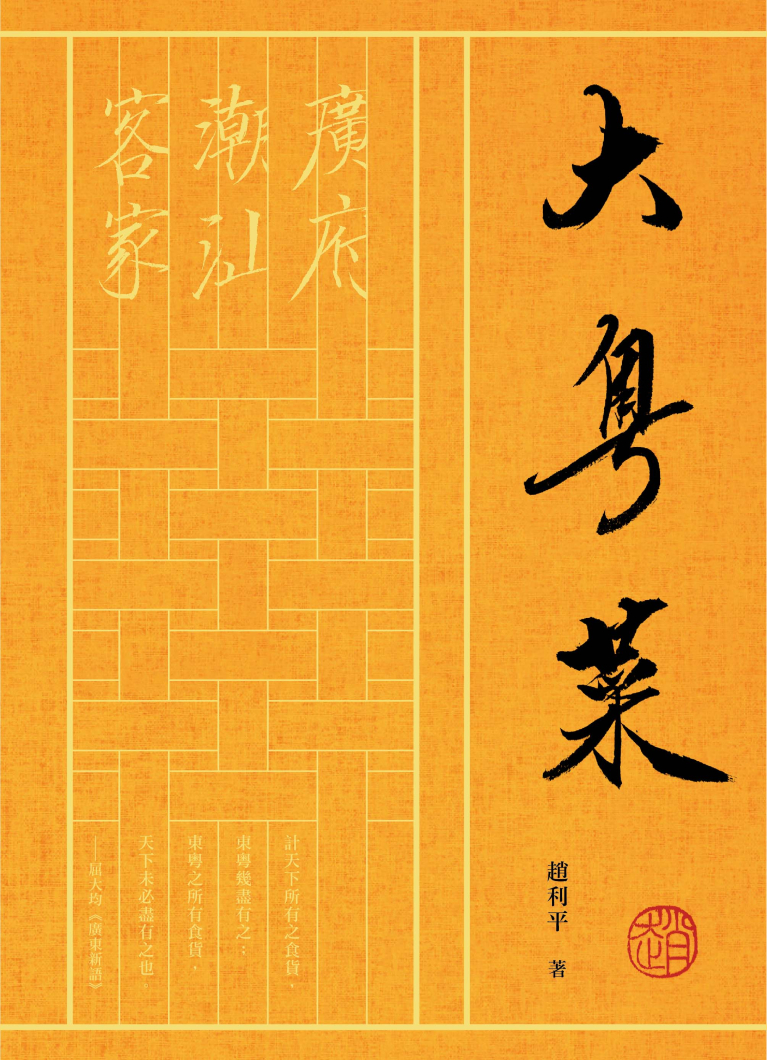 大粵菜
趙利平 著
趙
廣府
潮汕
客家
計天下所有之食貨，
東粵幾盡有之；
東粵之所有食貨，
天下未必盡有之也。
——屈大均《廣東新語》